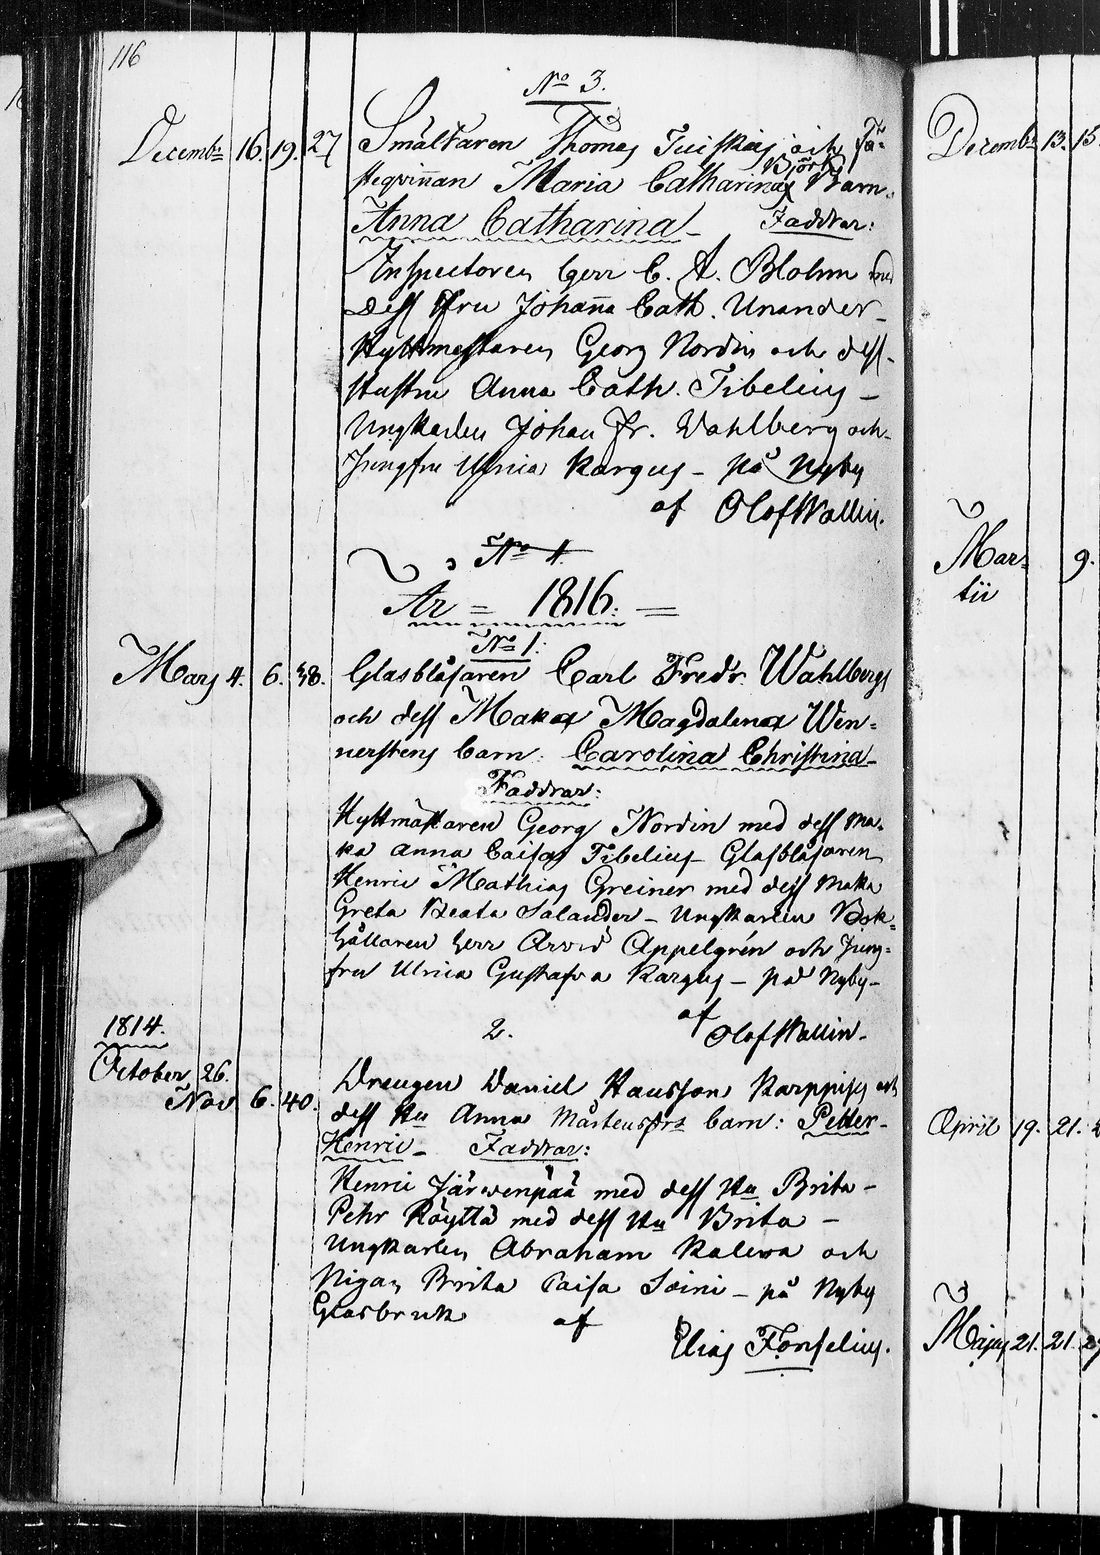 116
No 3.
Decembr 16. 19. 27 Smältaren Thomas och Fä-
steqvinnan Maria Catharina Björk Barn.
Anna Catharina Faddrar:
Inspectoren herr C. A. Blohm med
dess Fru Johanna Cath. Unander
Hyttmestaren Georg Nordin och dess
Hustru Anna Cath. Tibelius
Ungkarlen Johan Fr. Wahlberg och
Jungfru Ulrica Kargus på Nyby
af Olof Wallin.
No 4.
År = 1816. =
No 1.
Mars 4. 6. 38. Glasblåsaren Carl Fredr. Wahlbergs
och dess Maka Magdalena Wen-
nerstens barn: Carolina Christina
Faddrar:
Hyttmästaren Georg Nordin med dess Ma-
ka Anna Caisa Tibelius Glasblåsaren
Henric Mathias Greiner med dess Maka
Greta Beata Salander – Ungkarlen Bok-
hållaren herr Arvid Appelgrén och Jung-
fru Ulrica Gustafva Kargus – på Nyby –
af
Olof Wallin.
1814. 2.
October 26.
Nov 6. 40. Drengen Daniel Hansson Karppis och
dess Hu Anna Mårtensdrs barn: Petter
Henric – Faddrar:
Henric Järwenpää med dess Hu Brita –
Pehr Köyttä med dess Hu Brita –
Ungkarlen Abraham Kalewa och
Pigan Brita Caisa Soini – på Nyby
Glasbruk af
Elias Fonselius.
Decembr 13. 15.
Mar- 9.
tii
April 19. 21.
Majus 21. 21.